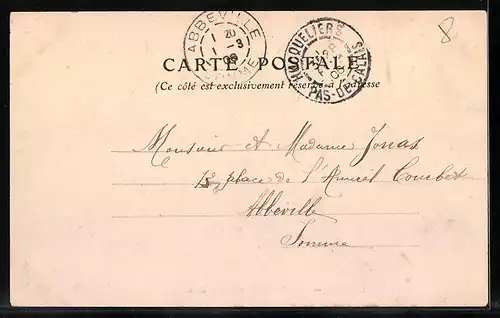 8
ABBEVILLE
SOMME
HACQUELIERS
PAS-DE-CALAIS
CARTE POSTALE
(Ce côté est exclusivement réservé à l'adresse
Monsieur et Madame Jonas
place de l'Amiral Courbet
Abbeville
Somme